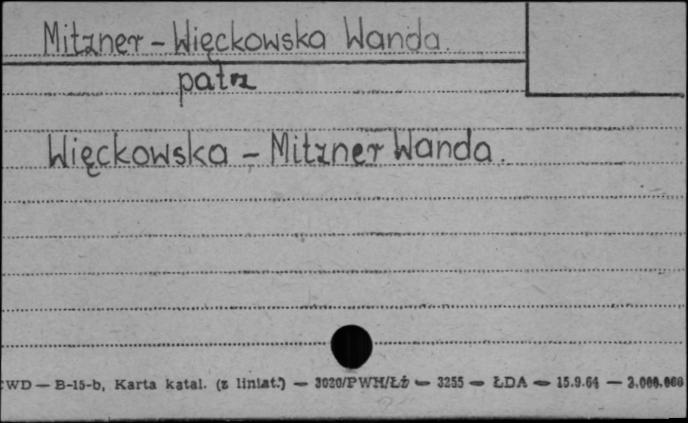 Mitzner - Więckowska Wanda.
patrz
Więckowska - Mitzner Wanda.
CWD — B-15-b, Karta katal. (z liniat.) — 3020/PWH/Łż — 3255 — ŁDA — 15.9.64 — 3.000.000